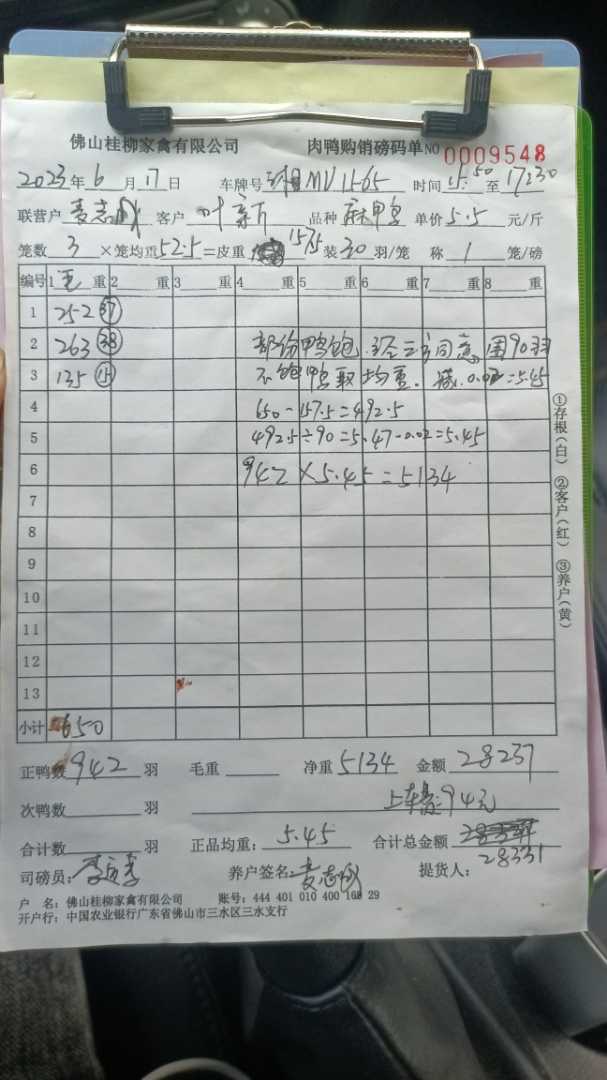 佛山桂柳家禽有限公司 肉鸭购销磅码单 NO 0009548
2023年6月17日 车牌号 MV1565 时间15:50至17:30
联营户 麦志成 客户 叶新 品种 麻鸭 单价5.5元/斤
笼数3×笼均重52.5=皮重157.5装30羽/笼 称1笼/磅
编号 1毛重 2重 3重 4重 5重 6重 7重 8重
1 252 37
2 263 38 部份鸭饱.经三方同意,困90羽
3 135 15 不饱鸭取均重.减0.02=5.45
4 650-157.5=492.5
5 492.5÷90=5.47-0.02=5.45
6 942×5.45=5134
7
8
9
10
11
12
13
小计 650
①存根(白) ②客户(红) ③养户(黄)
正鸭数942羽 毛重 净重5134 金额28237
次鸭数 羽 上车费:94元
合计数 羽 正品均重:5.45 合计总金额
28331
司磅员: 养户签名:麦志成 提货人:
户 名:佛山桂柳家禽有限公司 账号:444 401 010 400 160 29
开户行:中国农业银行广东省佛山市三水区三水支行